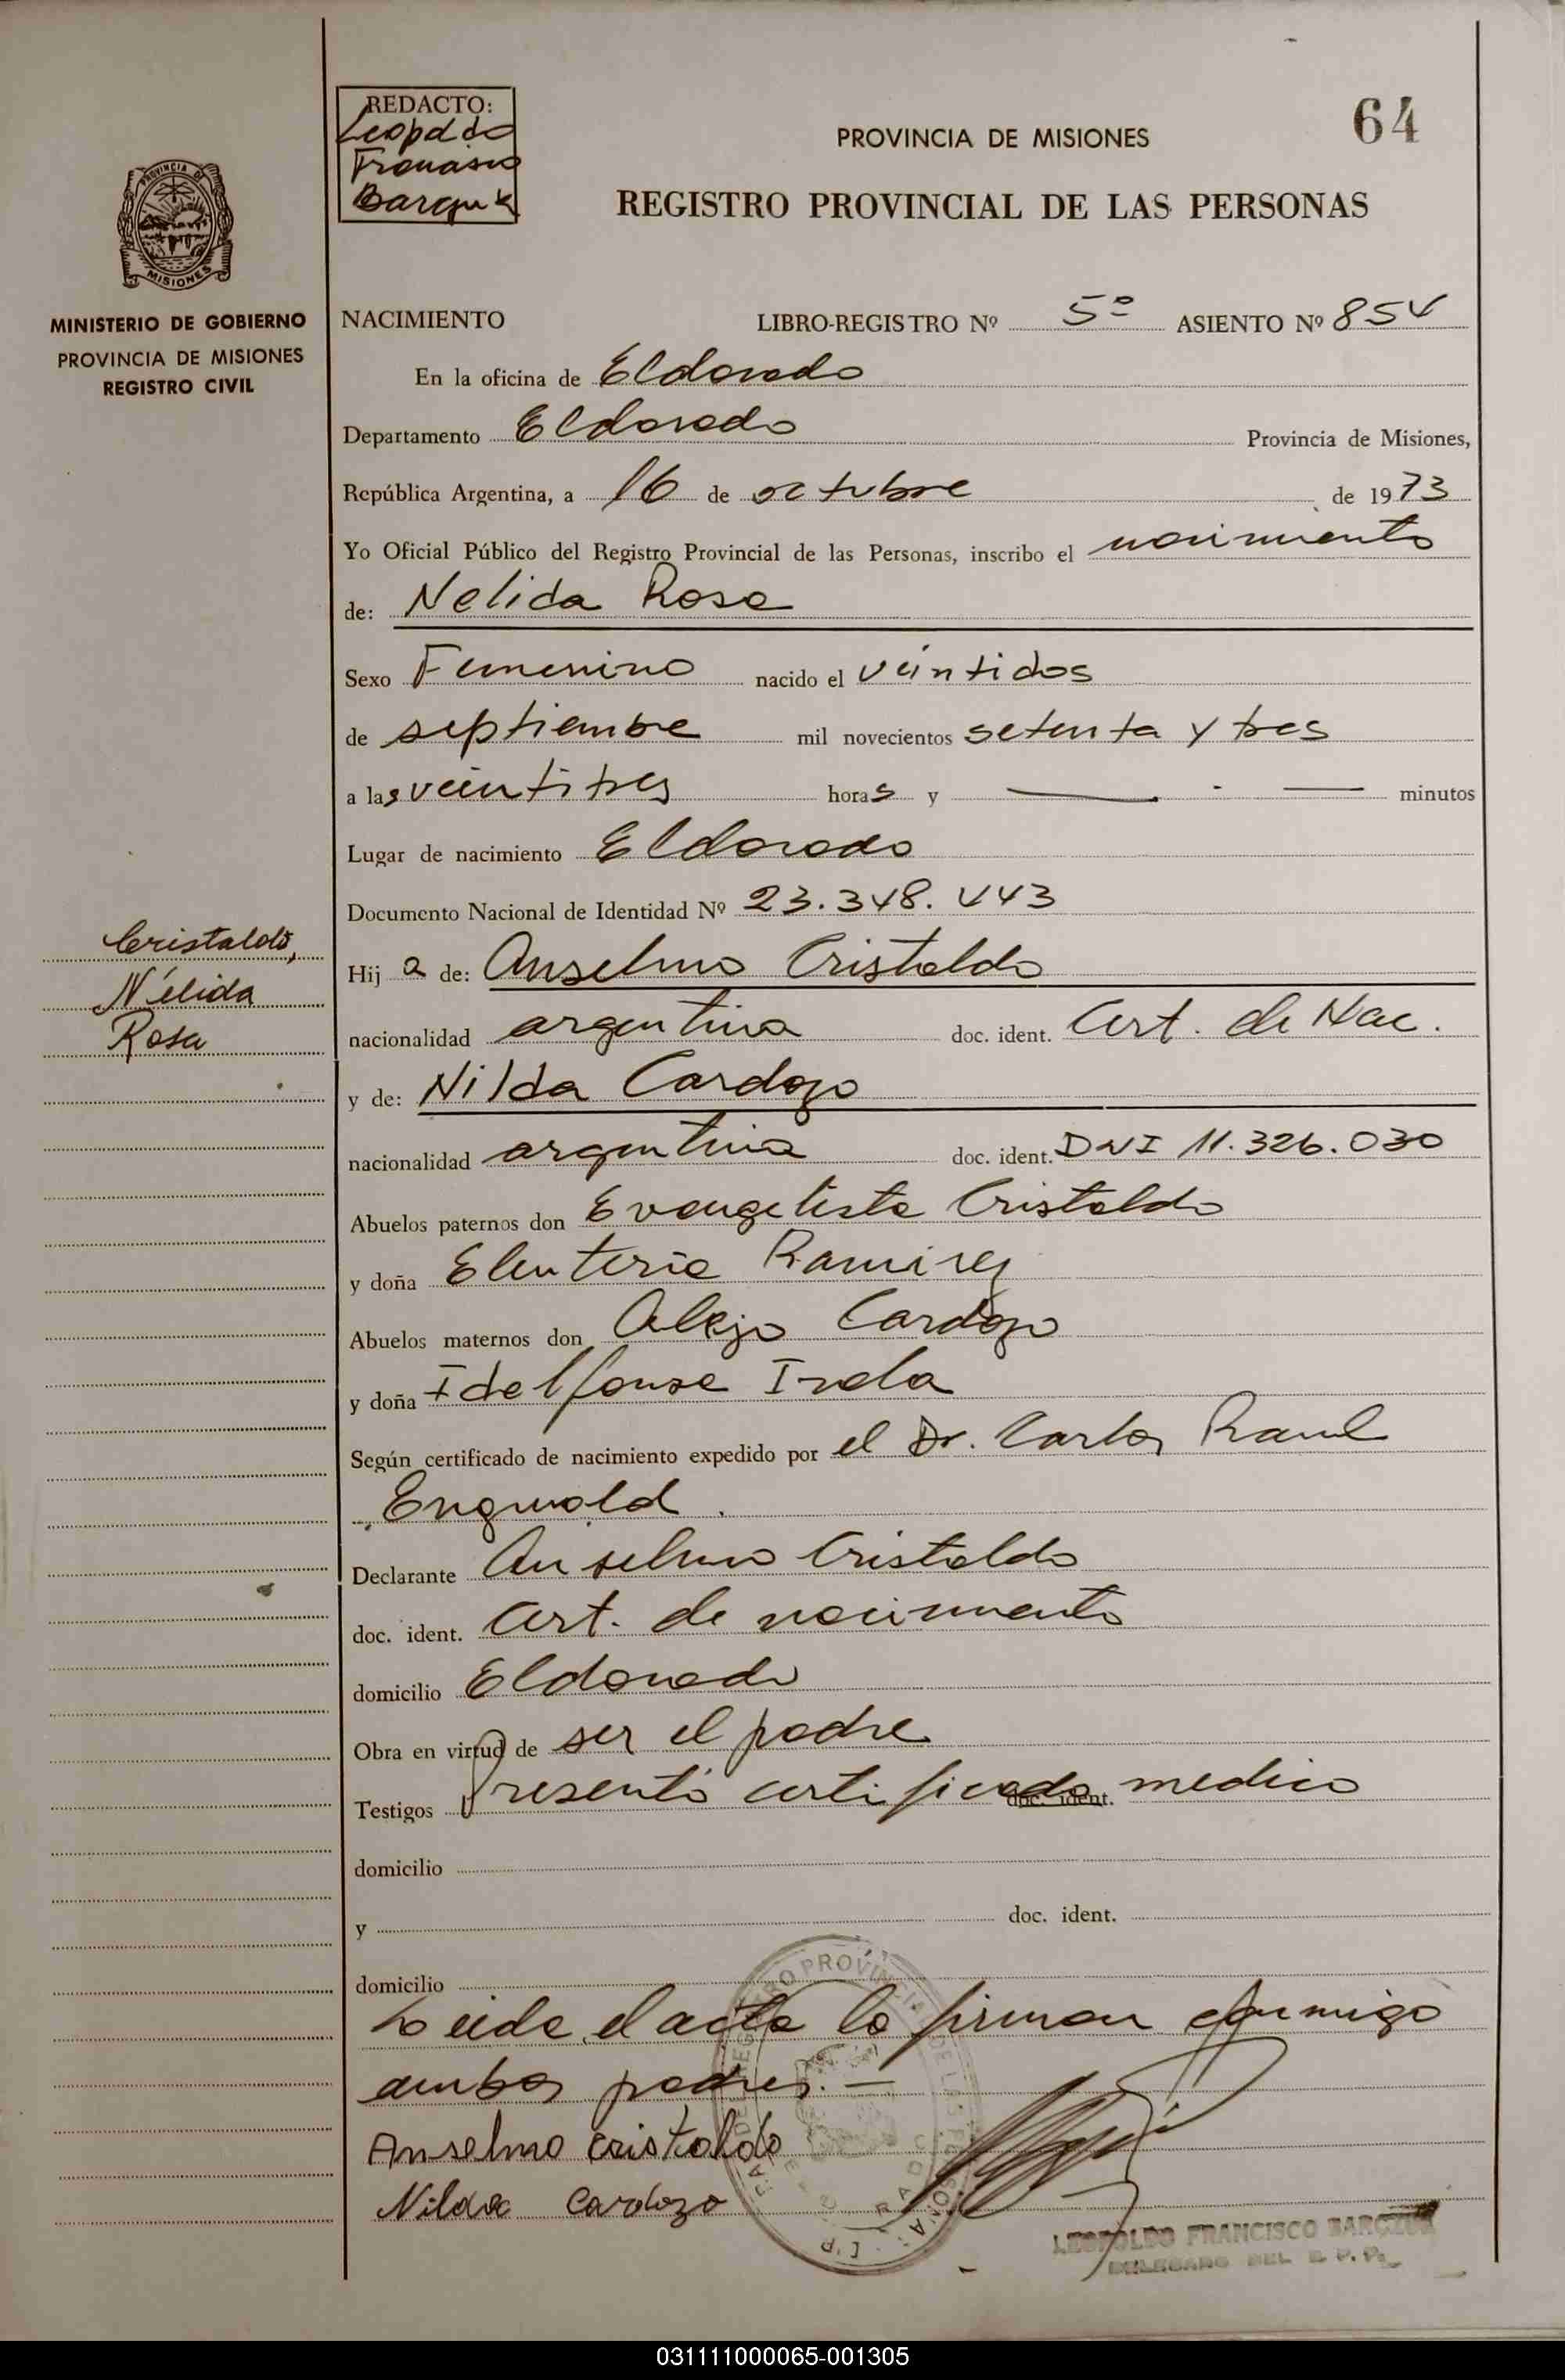 REDACTO:
Leopoldo
Francisco
Barczuk
64
PROVINCIA DE MISIONES
REGISTRO PROVINCIAL DE LAS PERSONAS
PROVINCIA DE
MISIONES
MINISTERIO DE GOBIERNO
PROVINCIA DE MISIONES
REGISTRO CIVIL
NACIMIENTO LIBRO-REGISTRO Nº 5º ASIENTO Nº 854
En la oficina de Eldorado
Departamento Eldorado Provincia de Misiones,
República Argentina, a 16 de octubre de 1973
Yo Oficial Público del Registro Provincial de las Personas, inscribo el nacimiento
de: Nelida Rosa
Sexo Femenino nacido el veintidos
de septiembre mil novecientos setenta y tres
a las veintitres horas y — . — minutos
Lugar de nacimiento Eldorado
Documento Nacional de Identidad Nº 23.348.443
Cristaldo,
Nélida
Rosa
Hija de: Anselmo Cristaldo
nacionalidad argentina doc. ident. Cert. de Nac.
y de: Nilda Cardozo
nacionalidad argentina doc. ident. DNI 11.326.030
Abuelos paternos don Evangelista Cristaldo
y doña Eleuteria Ramirez
Abuelos maternos don Alejo Cardozo
y doña Idelfonsa Irala
Según certificado de nacimiento expedido por el Dr. Carlos Raul
Engwald.
Declarante Anselmo Cristaldo
doc. ident. Cert. de nacimiento
domicilio Eldorado
Obra en virtud de ser el padre
Testigos Presentó certificado doc. ident. medico
domicilio
y doc. ident.
domicilio
Leida el acta la firman conmigo
ambos padres. —
Anselmo Cristaldo
Nilda Cardozo
LEOPOLDO FRANCISCO BARCZUK
DELEGADO DEL R. P. P.
031111000065-001305